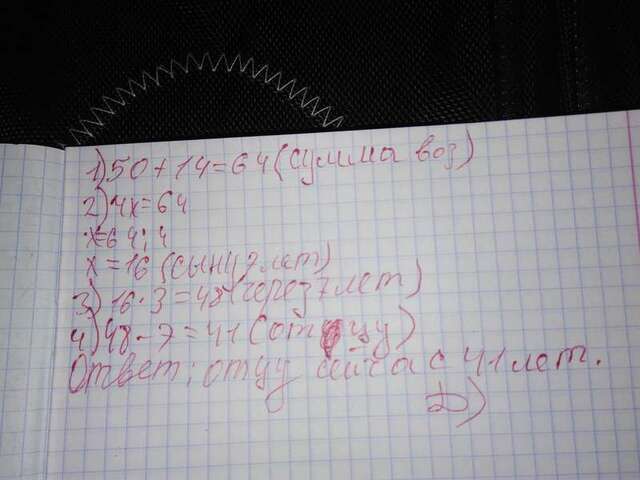 1) 50 + 14 = 64 (сумма воз)
2) 4x = 64
x = 64 : 4
x = 16 (сыну 7 лет)
3) 16 · 3 = 48 (через 7 лет)
4) 48 - 7 = 41 (отцу)
Ответ: отцу сейчас 41 лет.
D)